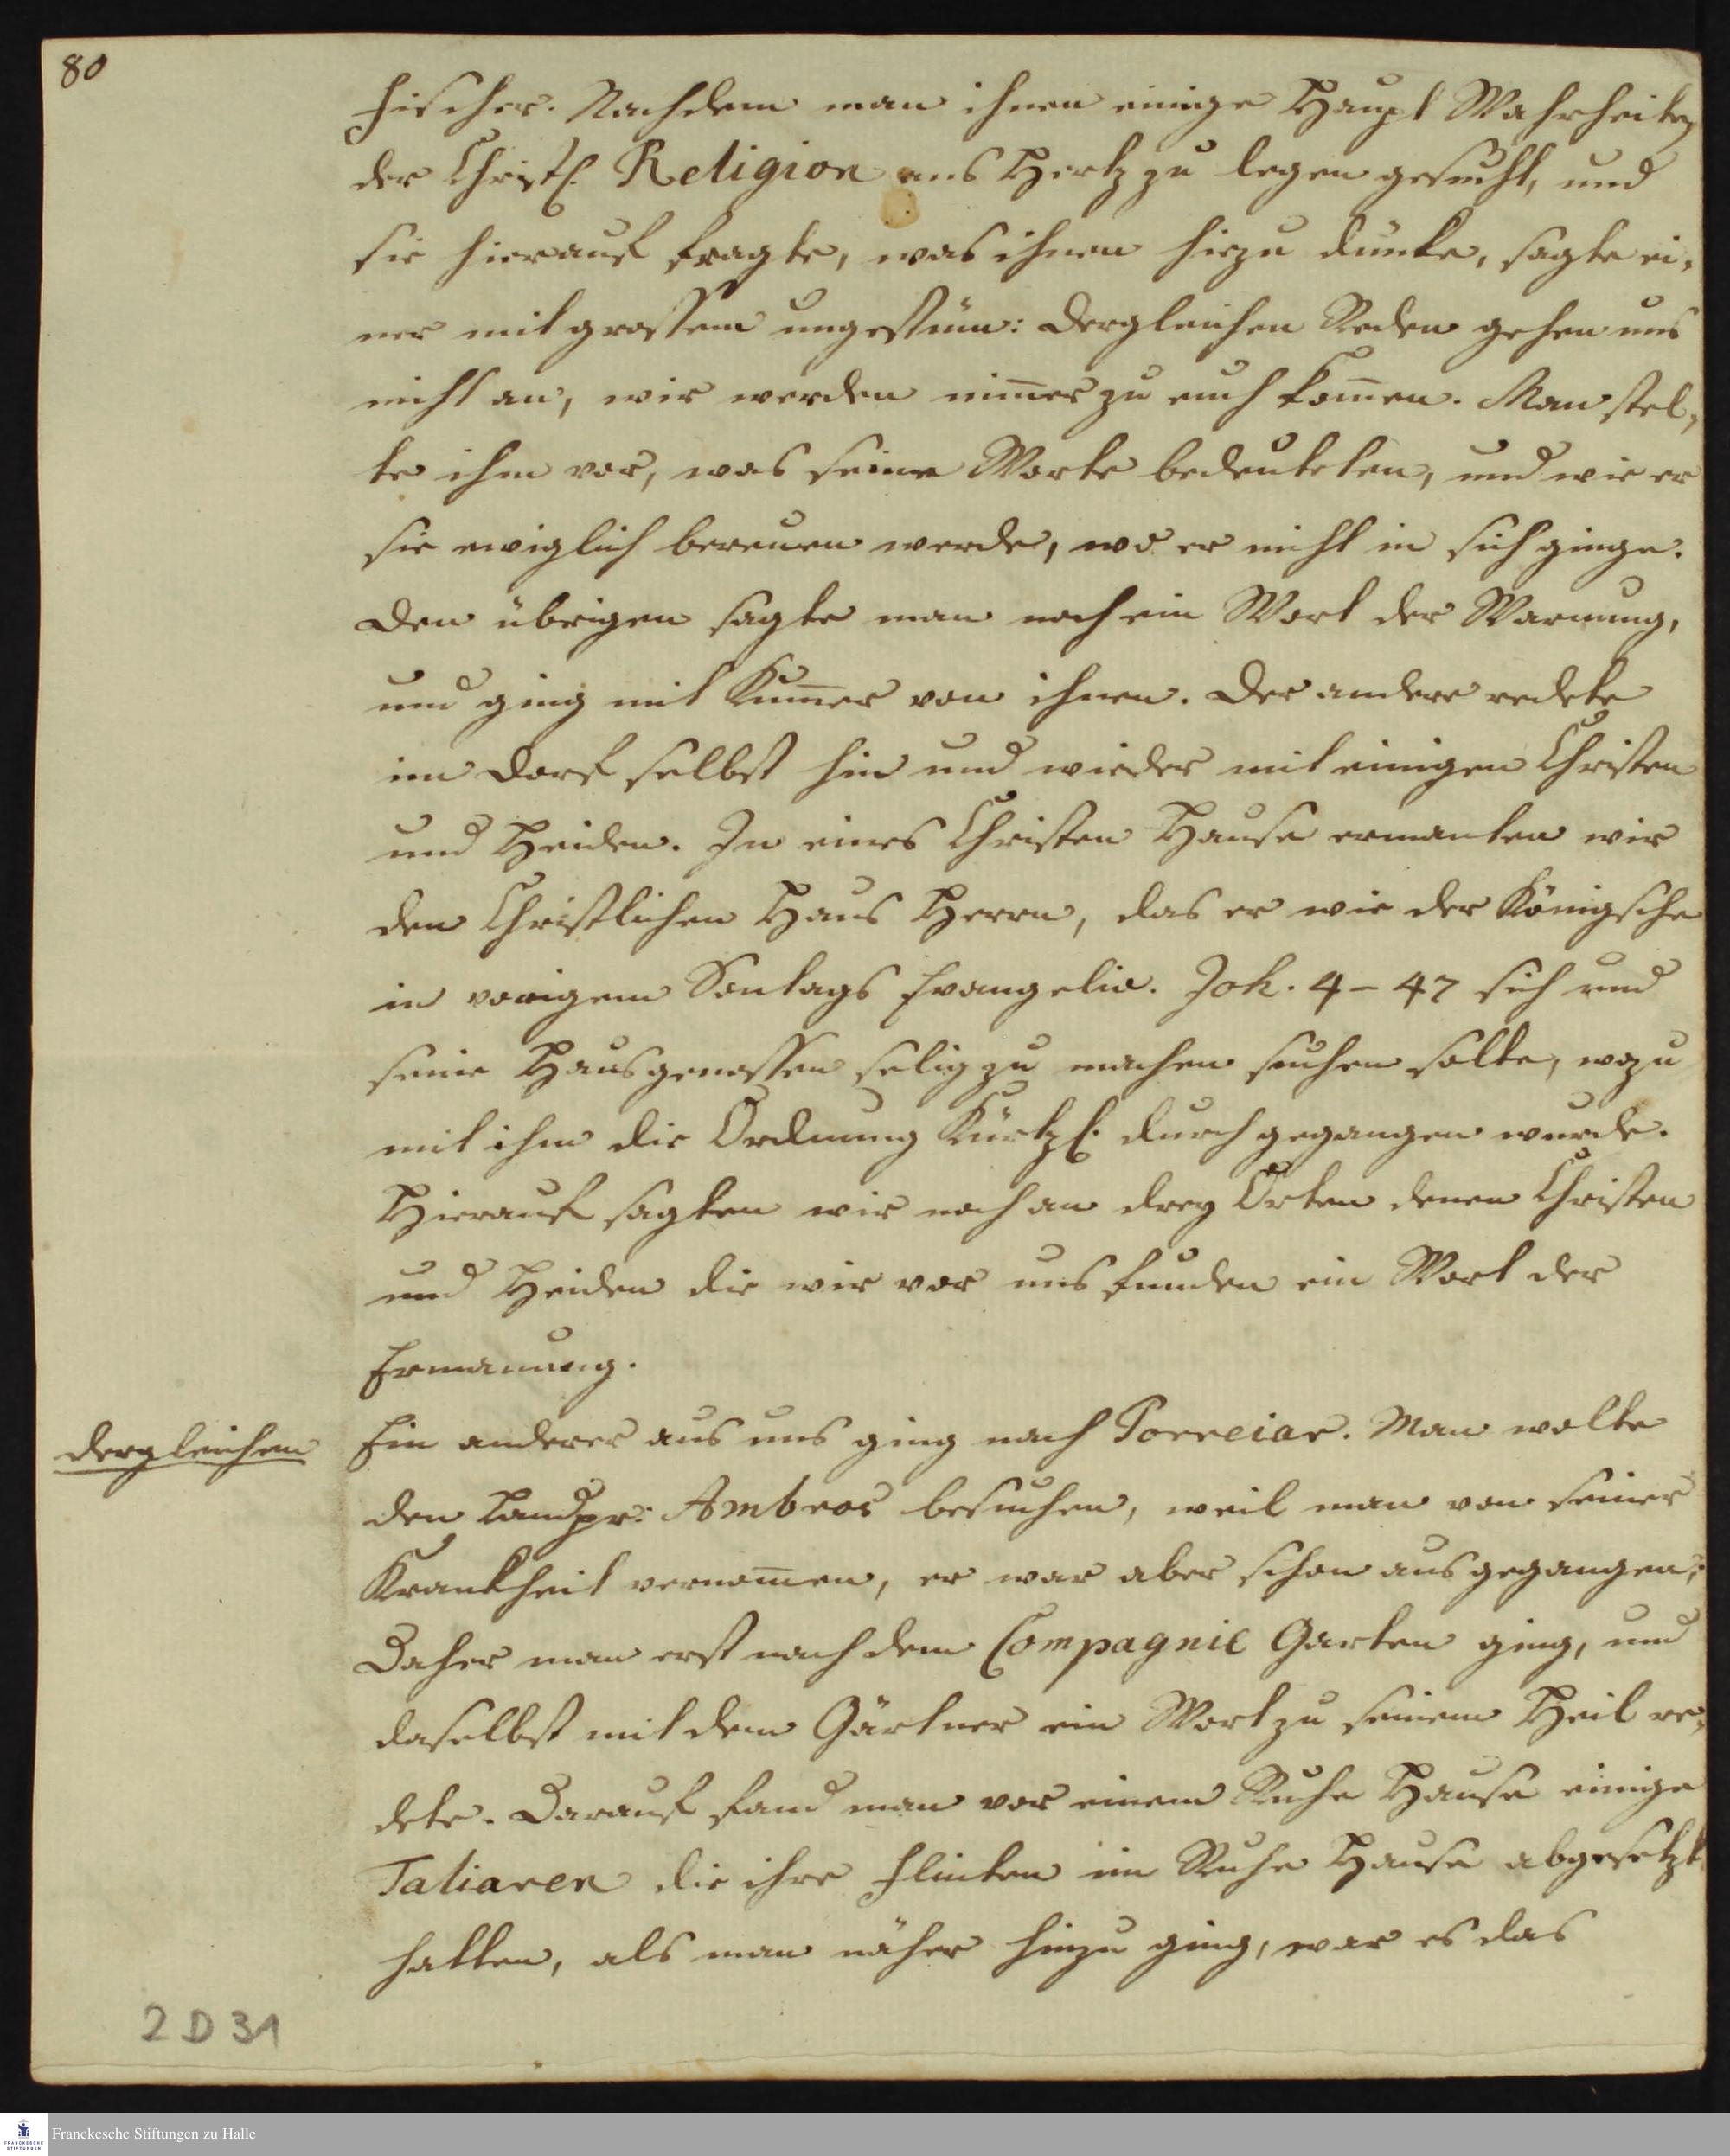 80
Fischer. Nachdem man ihnen einige Haupt Wahrheiten
der Christl. Religion ans Hertz zu legen gesucht, und
sie hierauf fragte, was ihnen hiezu dünke, sagte ei-
ner mit grossem ungestüm: dergleichen Reden gehen uns
nicht an, wir werden nim̄er zu euch kom̄en. Man stel-
te ihm vor, was seine Worte bedeuteten, und wie er
sie ewiglich bereuen werde, wo er nicht in sich ginge.
Den übrigen sagte man noch ein Wort der Warnung,
und ging mit Kum̄er von ihnen. Der andere redete
im Dorf selbst hin und wieder mit einigen Christen
und Heiden. In eines Christen Hause ermanten wir
den Christlichen Haus Herrn, das er wie der Königsche
in vorigem Sontags Evangelio. Joh. 4–47 sich und
seine Hausgenossen selig zu machen suchen solte, wozu
mit ihm die Ordnung Kürtzl. durchgegangen wurde.
Hierauf sagten wir noch an drey Orten denen Christen
und Heiden die wir vor uns funden ein Wort der
Ermanung.
dergleichen
Ein anderer aus uns ging nach Porreiar. Man wolte
den Landpr: Ambros besuchen, weil man von seiner
Krankheit vernom̄en, er war aber schon ausgegangen;
Daher man erst nach dem Compagnie Garten ging, und
daselbst mit dem Gärtner ein Wort zu seinem Heil re-
dete. Darauf fand man vor einem Ruhe Hause einige
Taliaren die ihre Flinten im Ruhe Hause abgesetzt
hatten, als man näher hinzu ging, war es das
2 D 31
Franckesche Stiftungen zu Halle